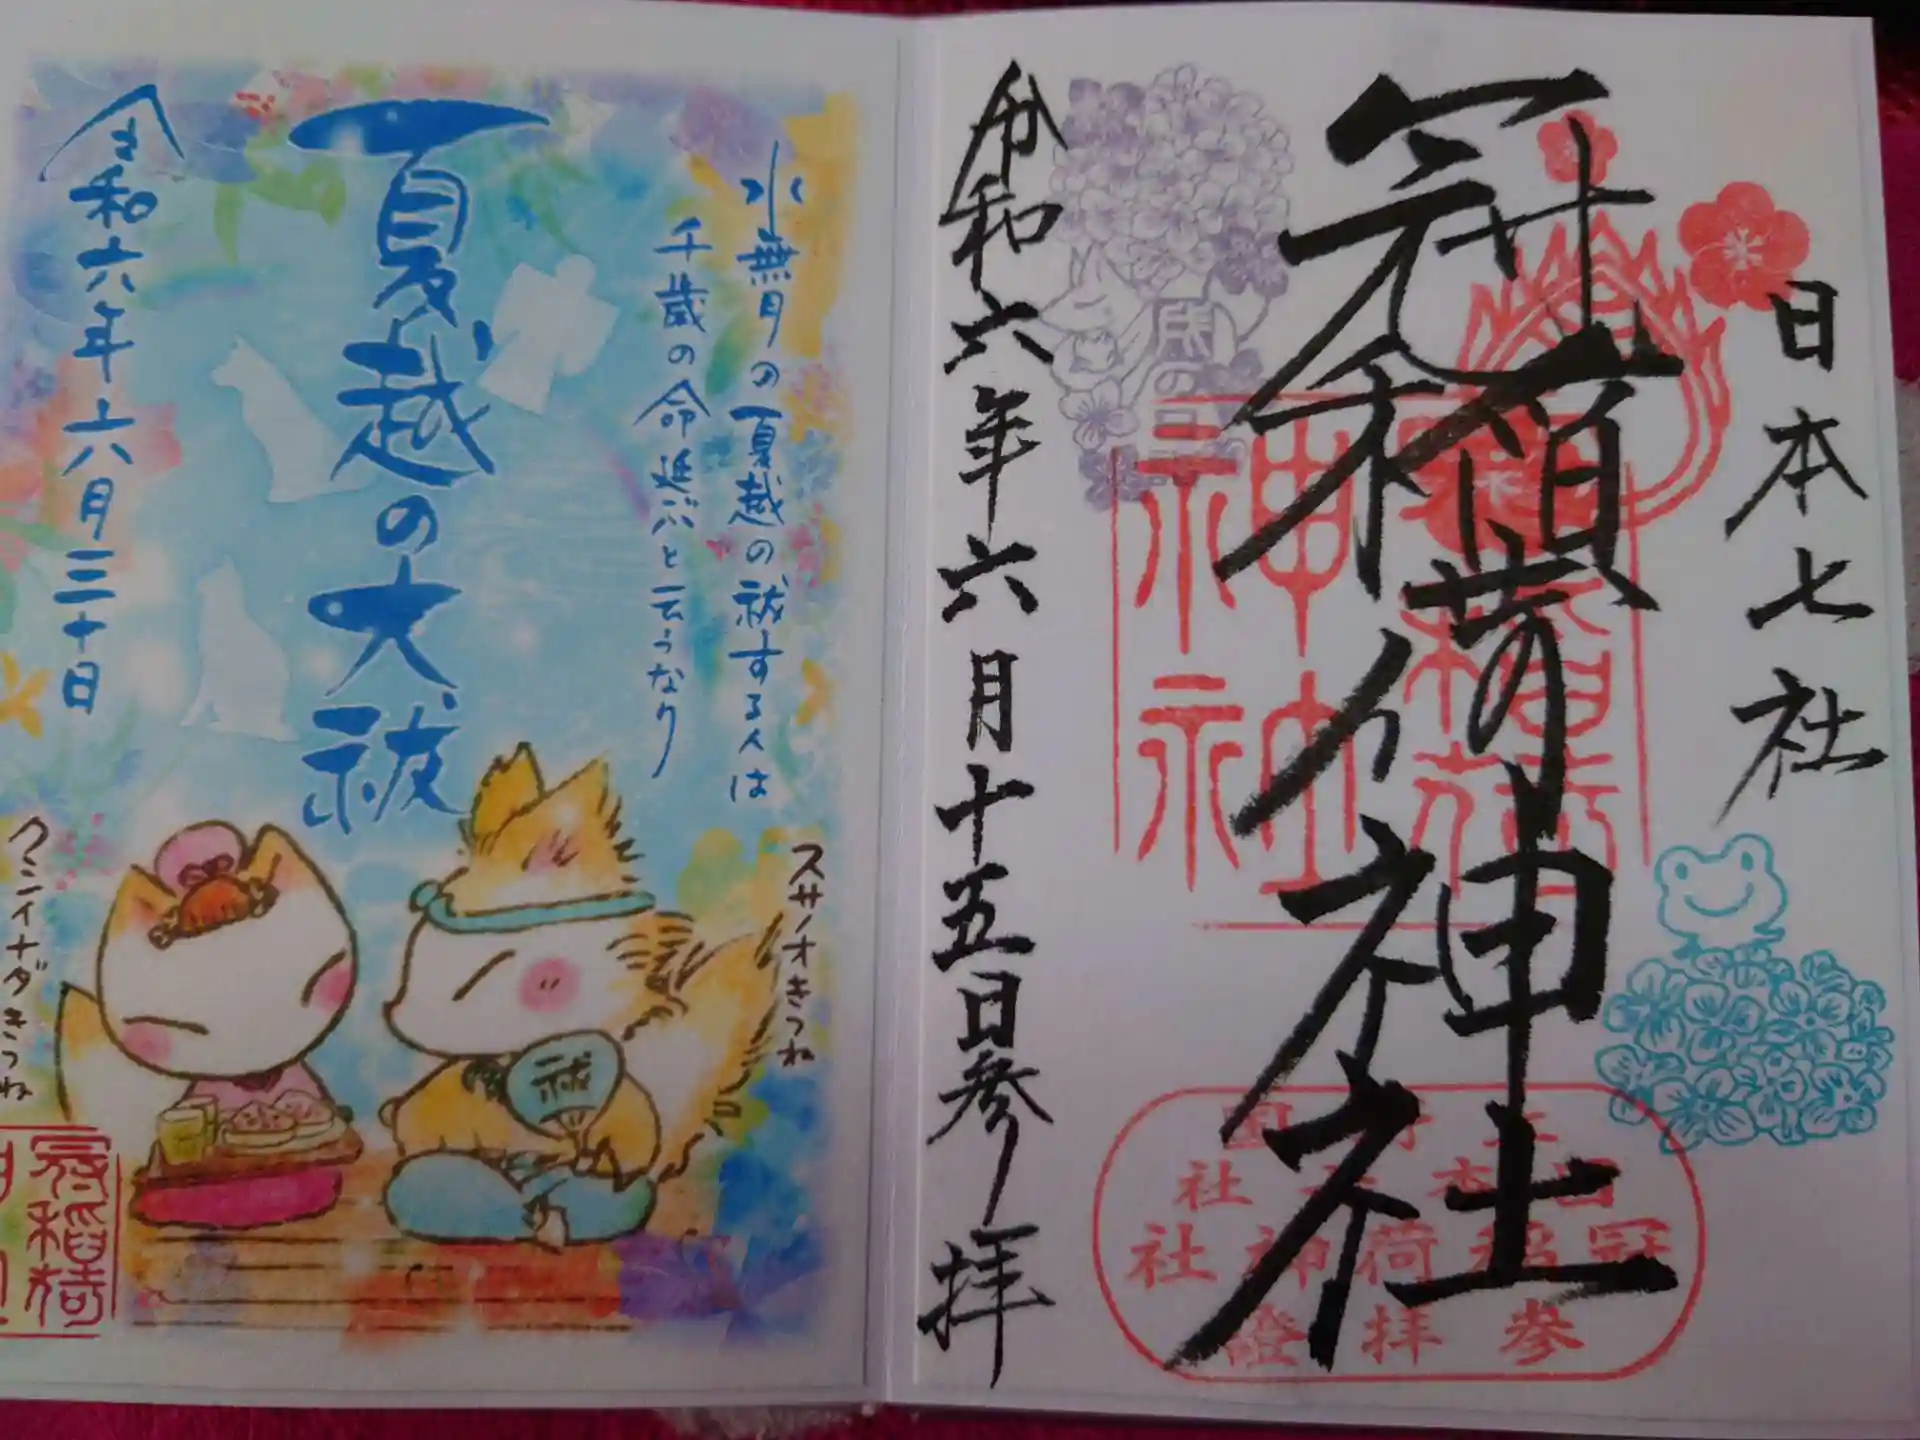 日本七社
冠稲荷神社
令和六年六月十五日参拝
父の日
冠稲荷
神社
日本七社
冠稲荷神社
参拝證
水無月の夏越の祓する人は
千歳の命延ぶと云うなり
夏越の大祓
令和六年六月三十日
スサノオきつね
祓
クシイナダきつね
冠稲荷